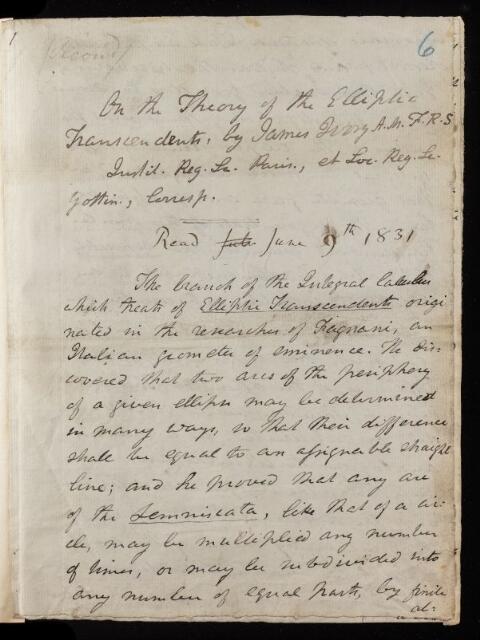 1
(Second)
6
On the Theory of the Elliptic
Transcendents, by James Ivory A.M. F.R.S
Instit. Reg. Sc. Paris., et Soc. Reg. Sc.
Gottin., Corresp.
Read June 9th 1831
The branch of the Integral Calculus
which treats of Elliptic Transcendents origi
nated in the researches of Fagnani, an
Italian geometer of eminence. He dis
covered that two arcs of the periphery
of a given ellipse may be determined
in many ways, so that their difference
shall be equal to an assignable straight
line; and he proved that any arc
of the Lemniscata, like that of a cir
cle, may be multiplied any number
of times, or may be subdivided into
any number of equal parts, by finite
al: